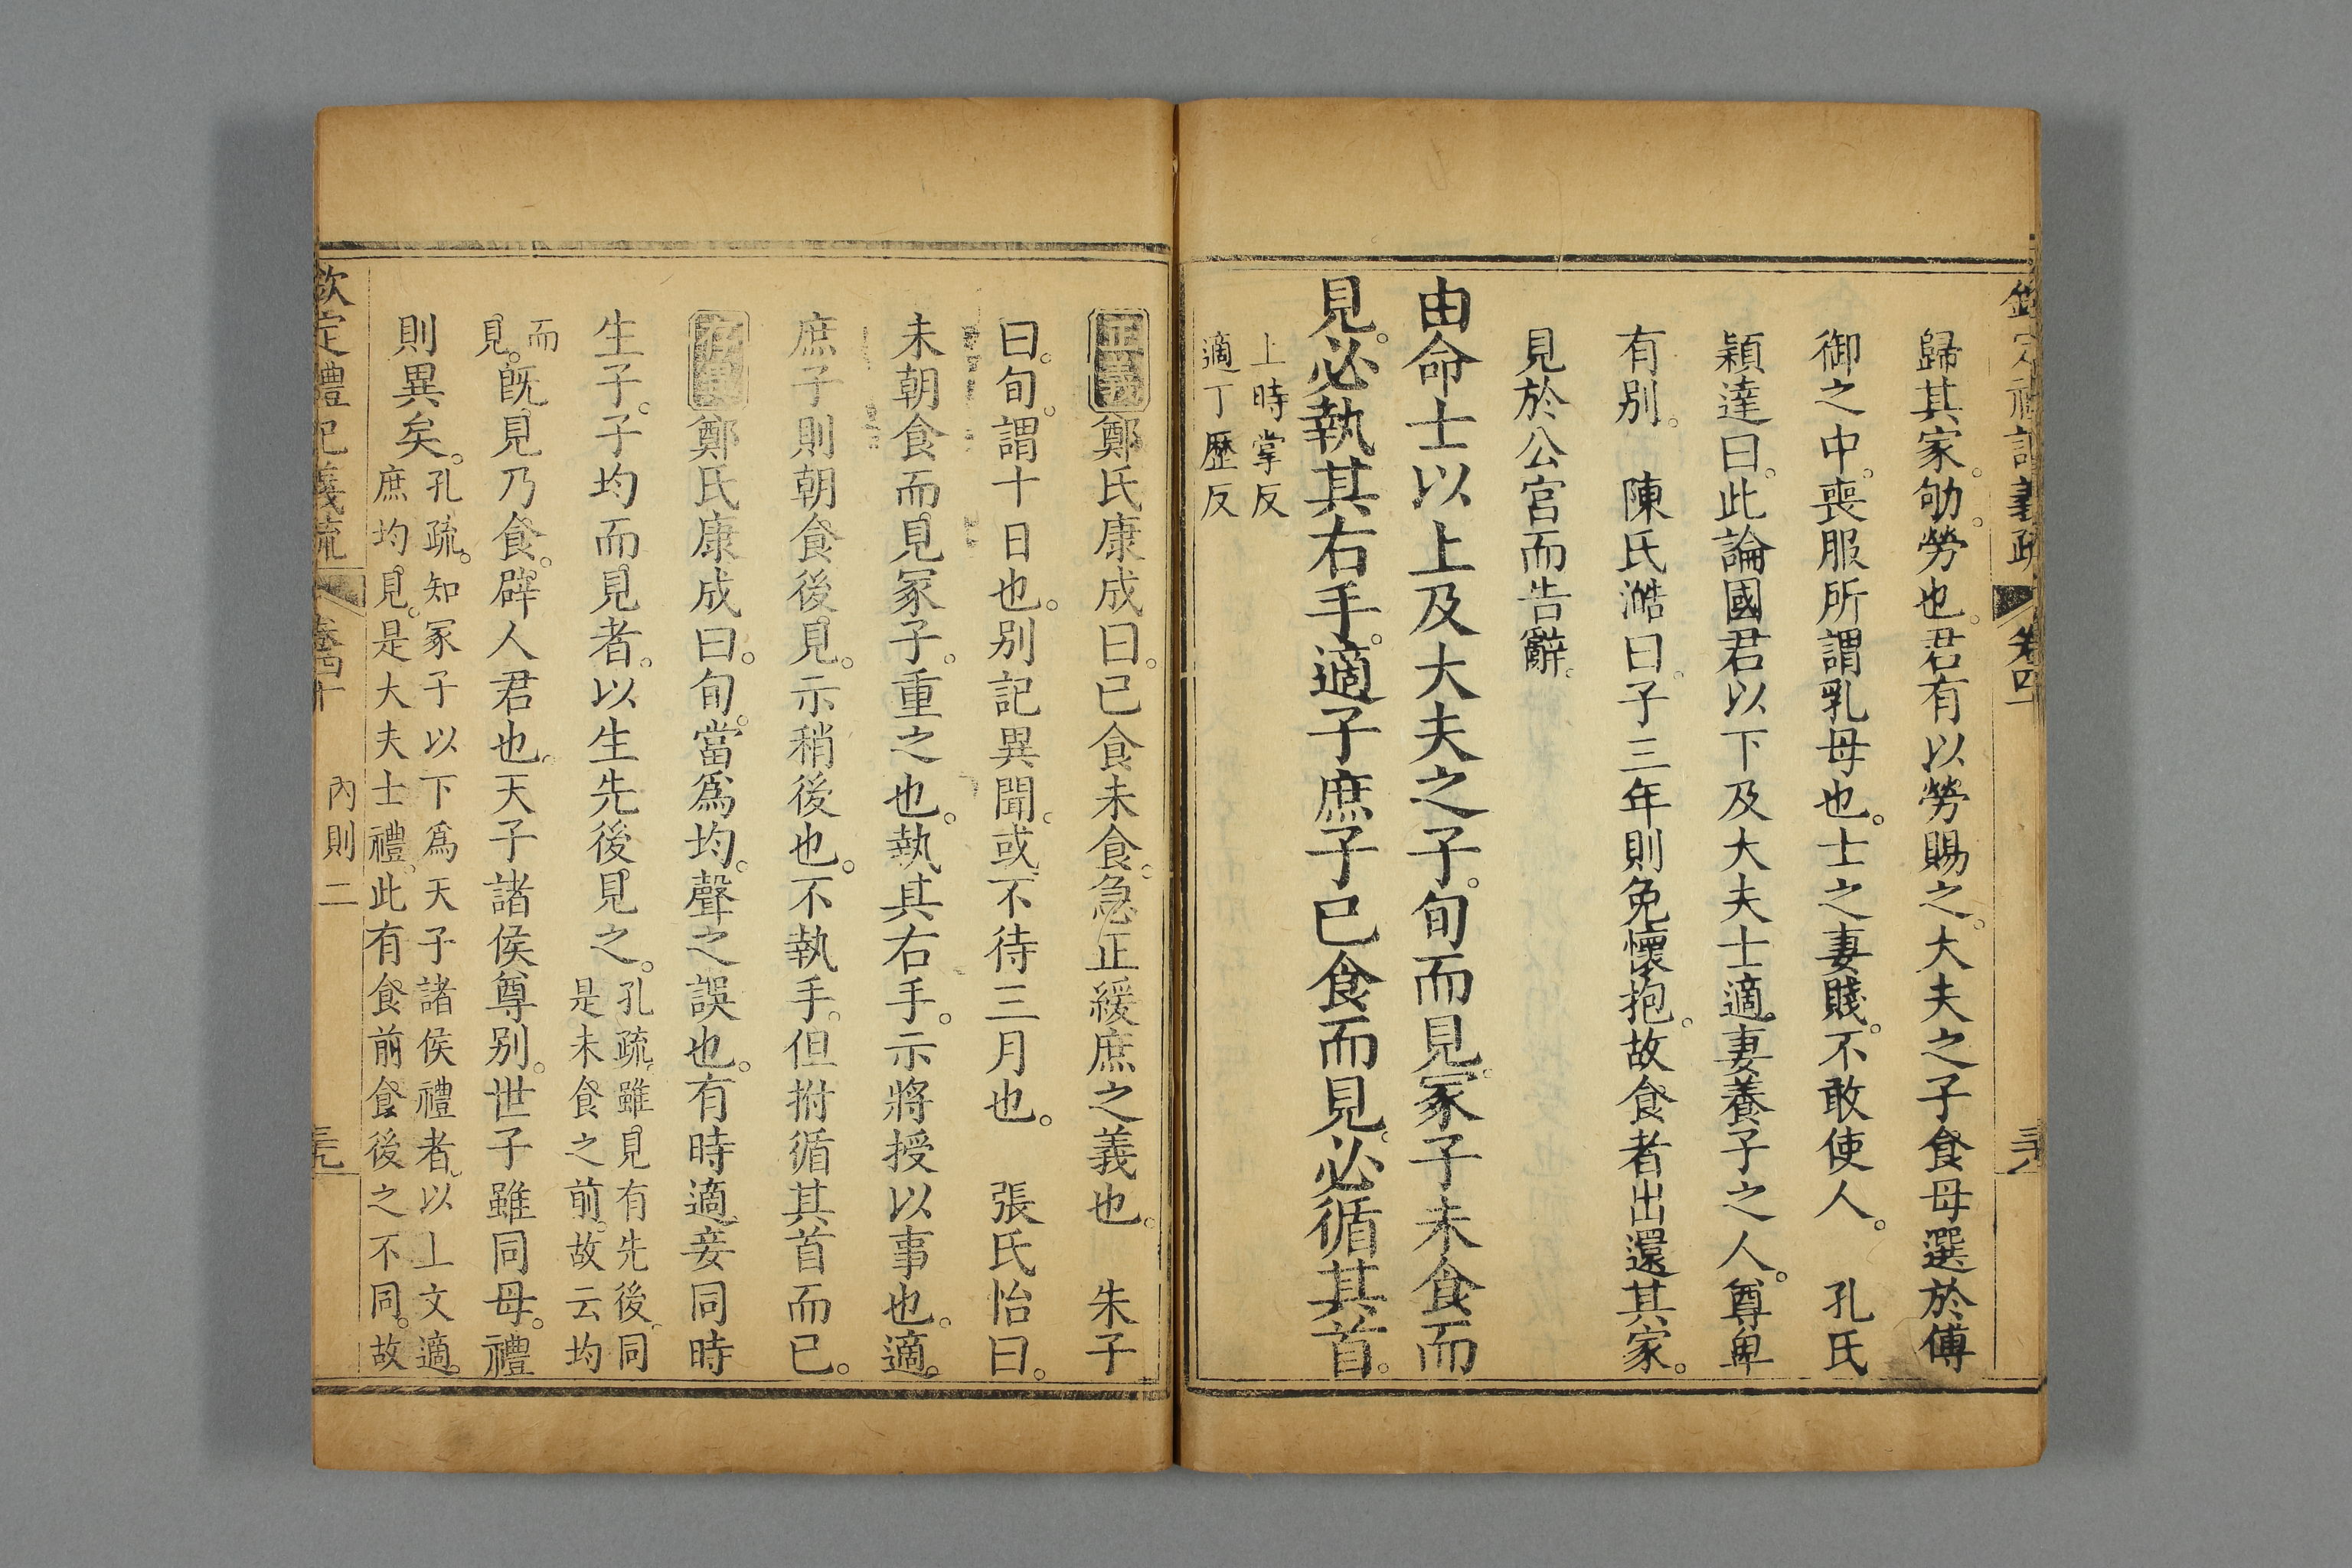 欽定禮記義疏 卷四十
歸其家。劬。勞也。君有以勞賜之。大夫之子食母選於傅
御之中。喪服所謂乳母也。士之妻賤。不敢使人。 孔氏
穎達曰。此論國君以下及大夫士適妻養子之人。尊卑
有別。 陳氏澔曰。子三年則免懷抱。故食者出還其家。
見於公宮而告辭。
由命士以上及大夫之子。旬而見。冢子未食而
見。必執其右手。適子庶子已食而見。必循其首。
上時掌反
適丁歷反
正義鄭氏康成曰。已食未食。急正緩庶之義也。 朱子
曰。旬。謂十日也。別記異聞。或不待三月也。 張氏怡曰。
未朝食而見冢子。重之也。執其右手。示將授以事也。適。
庶子則朝食後見。示稍後也。不執手。但拊循其首而已。
存異鄭氏康成曰。旬。當爲均。聲之誤也。有時適妾同時
生子。子均而見者。以生先後見之。孔疏。雖見有先後。同
是未食之前。故云均
而
見。既見乃食。辟人君也。天子諸侯尊別。世子雖同母。禮
則異矣。孔疏。知冢子以下爲天子諸侯禮者。以上文適。
庶均見。是大夫士禮。此有食前食後之不同。故
欽定禮記義疏 卷四十 內則二